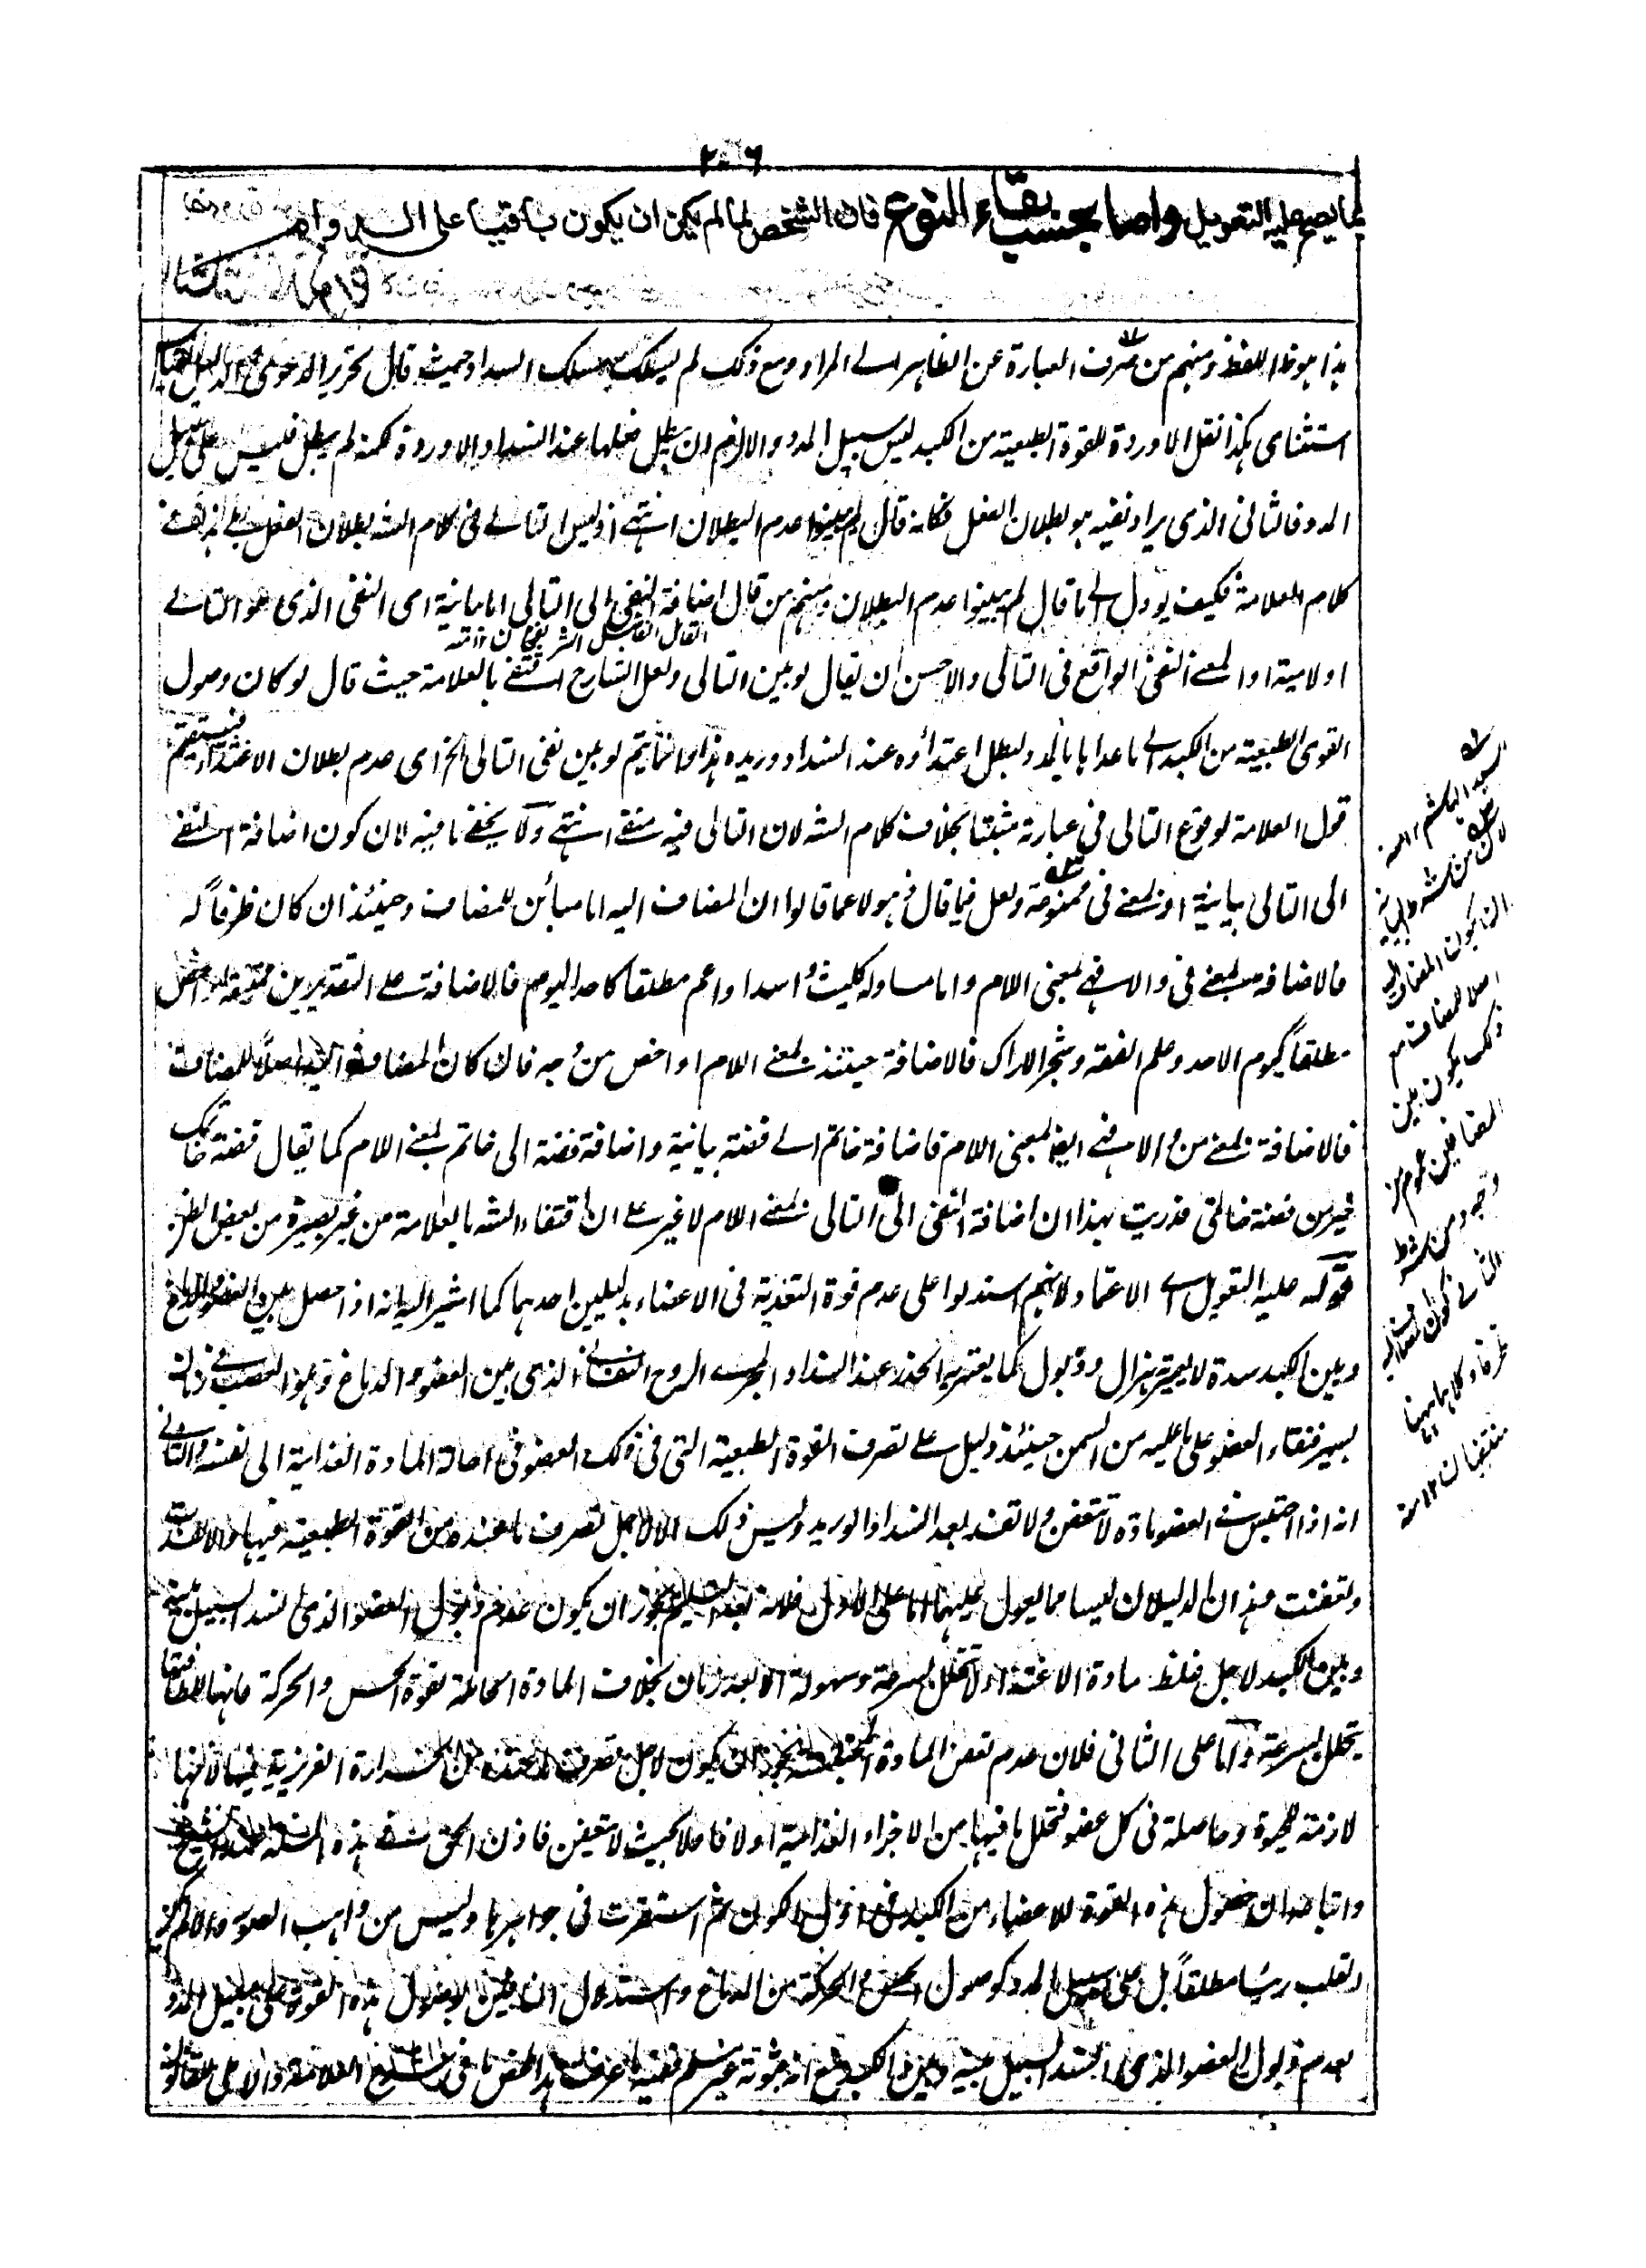 ٢٠٦
مما يصح عليه التعويل واما بحسب بقاء النوع فان الشخص لما لم يمكن ان يكون باقيا على الدوام
هذا هو ظ اللفظ ومنهم من صرف العبارة عن الظاهر الى المراد ومع ذلك لم يسلك مسلك السداد حيث قال تحرير الدعوى
استثنائى هكذا نقل الاوردة للقوة الطبعية من الكبد ليس سبيل المدد والا لزم ان يبطل فعلها عند انسداد الاوردة لكنه لم يبطل فليس على سبيل
المدد فالثانى الذى يراد نفيه هو بطلان الفعل فكانه قال لم يبينوا عدم البطلان انتهى اذ ليس التالى فى كلام الشه بطلان الفعل بل هذا فى
كلام العلامة فكيف يودل الى ما قال لم يبينوا عدم البطلان ومنهم من قال اضافة النفى الى التالى اما بيانية اى النفى الذى هو التالى
او لامية او بمعنى النفى الواقع فى التالى والاحسن ان يقال لو بين التالى ولعل الشارح اقتفى بالعلامة حيث قال لو كان وصول
القوى الطبيعية من الكبد الى ما عداها بالمدد لبطل اغتذاؤه عند انسداد وريده هذا وانما يتم لو بين نفى التالى الخ اى عدم بطلان الاغتذاء فيستقيم
قول العلامة لوقوع التالى فى عبارته مثبتا بخلاف كلام الشه لان التالى فيه منفى انتهى ولا يخفى ما فيه لان كون اضافة النفى
الى التالى بيانية او بمعنى فى ممنوعة ولعل فيما قال ذهولا عما قالوا ان المضاف اليه اما مبائن للمضاف وحينئذ ان كان ظرفاً له
فالاضافة بمعنى فى والا فهى بمعنى اللام واما مساو له كليث اسد او اعم مطلقا كاحد اليوم فالاضافة على التقديرين ممتنعة او اخص
مطلقاً كيوم الاحد وعلم الفقه وشجر الاراك فالاضافة حينئذ بمعنى اللام او اخص من وجه فان كان المضاف اليه اصلاً للمضاف
فالاضافة بمعنى من والا فهى ايضا بمعنى اللام فاضافة خاتم الى فضة بيانية واضافة فضة الى خاتم بمعنى اللام كما يقال فضة خاتمك
خير من فضة خاتمى فدريت بهذا ان اضافة النفى الى التالى بمعنى اللام لا غير على ان اقتفاء الشه بالعلامة من غير بصيرة من بعض الظن
قوله عليه التعويل اى الاعتماد لانهم استدلوا على عدم قوة التغذية فى الاعضاء بدليلين احدهما كما اشير اليه انه اذا حصل بين العضو
وبين الكبد سدة لا يعتريه هزال وذبول كما يعتريه الخدر عند انسداد المجرى الروح النفسانى الذى بين العضو والدماغ وهو العصب فى زمان
يسير فبقاء العضو على ما عليه من السمن حينئذ دليل على تصرف القوة الطبيعية التى فى ذلك العضو فى احالة المادة الغذائية الى نفسه والثانى
انه اذا احتبس فى العضو مادة لا تتعفن ولا تفسد بعد انسداد الوريد وليس ذلك الا لاجل تصرف ما عنده من القوة الطبيعية فيها والا لفسدت
وتعفنت وهذان الدليلان ليسا مما يعول عليهما اما على الاول فلانه بعد التسليم يجوز ان يكون عدم ذبول العضو الذى انسد السبيل بينه
وبين الكبد لاجل غلظ مادة الاغتذاء لا تتحلل بسرعة وسهولة الا بعد زمان بخلاف المادة الحاملة لقوة الحس والحركة فانها للطافتها
يتحلل بسرعة واما على الثانى فلان عدم تعفن المادة المحتبسة يجوز ان يكون لاجل تصرف ما عنده من الحرارة الغريزية فيها لانها
لازمة للحيوة وحاصلة فى كل عضو فتحلل ما فيها من الاجزاء الغذائية اولا فاولا بحيث لا تتعفن فاذن الحق فى هذه المسئلة عند الشيخ
واتباعه ان حصول هذه القوة للاعضاء من الكبد فى اول الكون ثم استقرت فى جواهرها وليس من واهب الصور والا لم يكن
القلب رئيسا مطلقاً بل على سبيل المدد كوصول الحس والحركة من الدماغ واستدلال النافين لوصول هذه القوة على سبيل المدد
بعدم ذبول العضو الذى انسد السبيل بينه وبين الكبد مع انه ثبوته غير مسلم ففيه
السيد الهاشم ١٢ منه
لان من شرط البيانية
ان يكون المضاف اليه
اصلا للمضاف مع
ذلك يكون بين
المضافين عموم من
وجه ومن شرط
الثانى كون المضاف اليه
ظرفا وكلاهما ههنا
منتفيان ١٢ منه